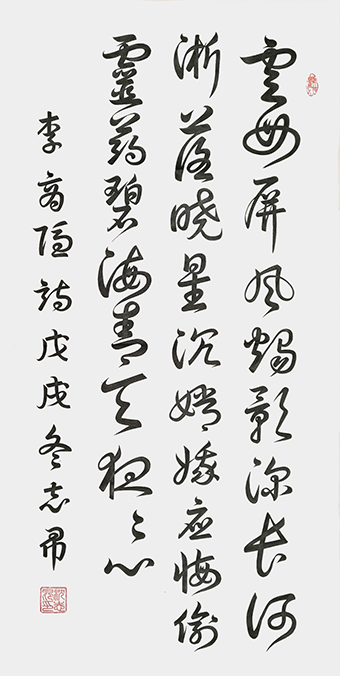 雲母屏風燭影深長河
漸落曉星沉嫦娥應悔偷
靈藥碧海青天夜々心
李商隱詩戊戌冬志